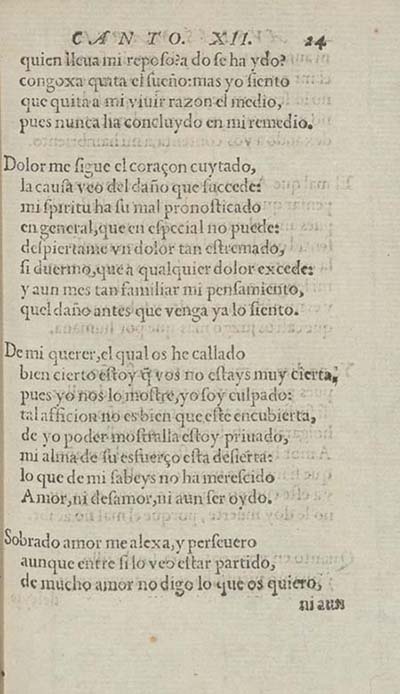 CANTO. XII. 24
quien lleua mi reposo? a do se ha ydo?
congoxa quita el sueño: mas yo siento
que quita a mi viuir razon el medio,
pues nunca ha concluydo en mi remedio.
Dolor me sigue el coraçon cuytado,
la causa veo del daño que succede:
mi spiritu ha su mal pronosticado
en general, que en especial no puede:
despiertame vn dolor tan estremado,
si duermo, que a qualquier dolor excede:
y aun mes tan familiar mi pensamiento,
quel daño antes que venga ya lo siento.
De mi querer, el qual os he callado
bien cierto estoy q̃ vos no estays muy cierta,
pues yo nos lo mostre, yo soy culpado:
tal afficion no es bien que este encubierta,
de yo poder mostralla estoy priuado,
mi alma de su esfuerço esta desierta:
lo que de mi sabeys no ha merescido
Amor, ni desamor, ni aun ser oydo.
Sobrado amor me alexa, y perseuero
aunque entre si lo veo estar partido,
de mucho amor no digo lo que os quiero,
ni aun